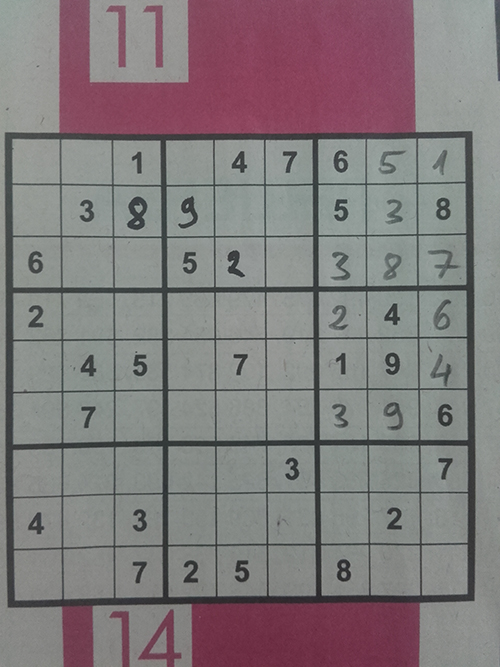 11
1 4 7 6 5 1
3 8 9 5 3 8
6 5 2 3 8 7
2 2 4 6
4 5 7 1 9 4
7 3 9 6
3 7
4 3 2
7 2 5 8
14